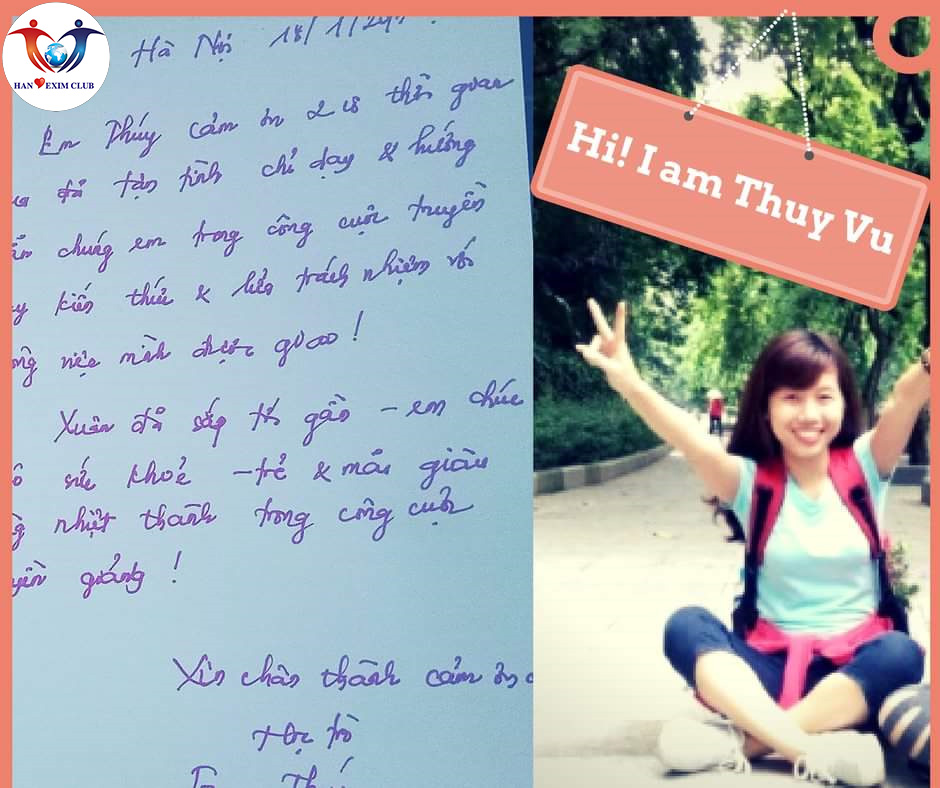 HAN EXIM CLUB
Hà Nội 18/1/201
Em Thúy cảm ơn 2 thời gian
đã tận tình chỉ dạy & hướng
chúng em trong công cuộc truyền
kiến thức & lửa trách nhiệm với
việc mình được giao!
Xuân đã sắp tới gần - em chúc
sức khoẻ - trẻ & mau giàu
nhiệt thành trong công cuộc
giảng!
Xin chân thành cảm ơn
Học trò
Hi! I am Thuy Vu